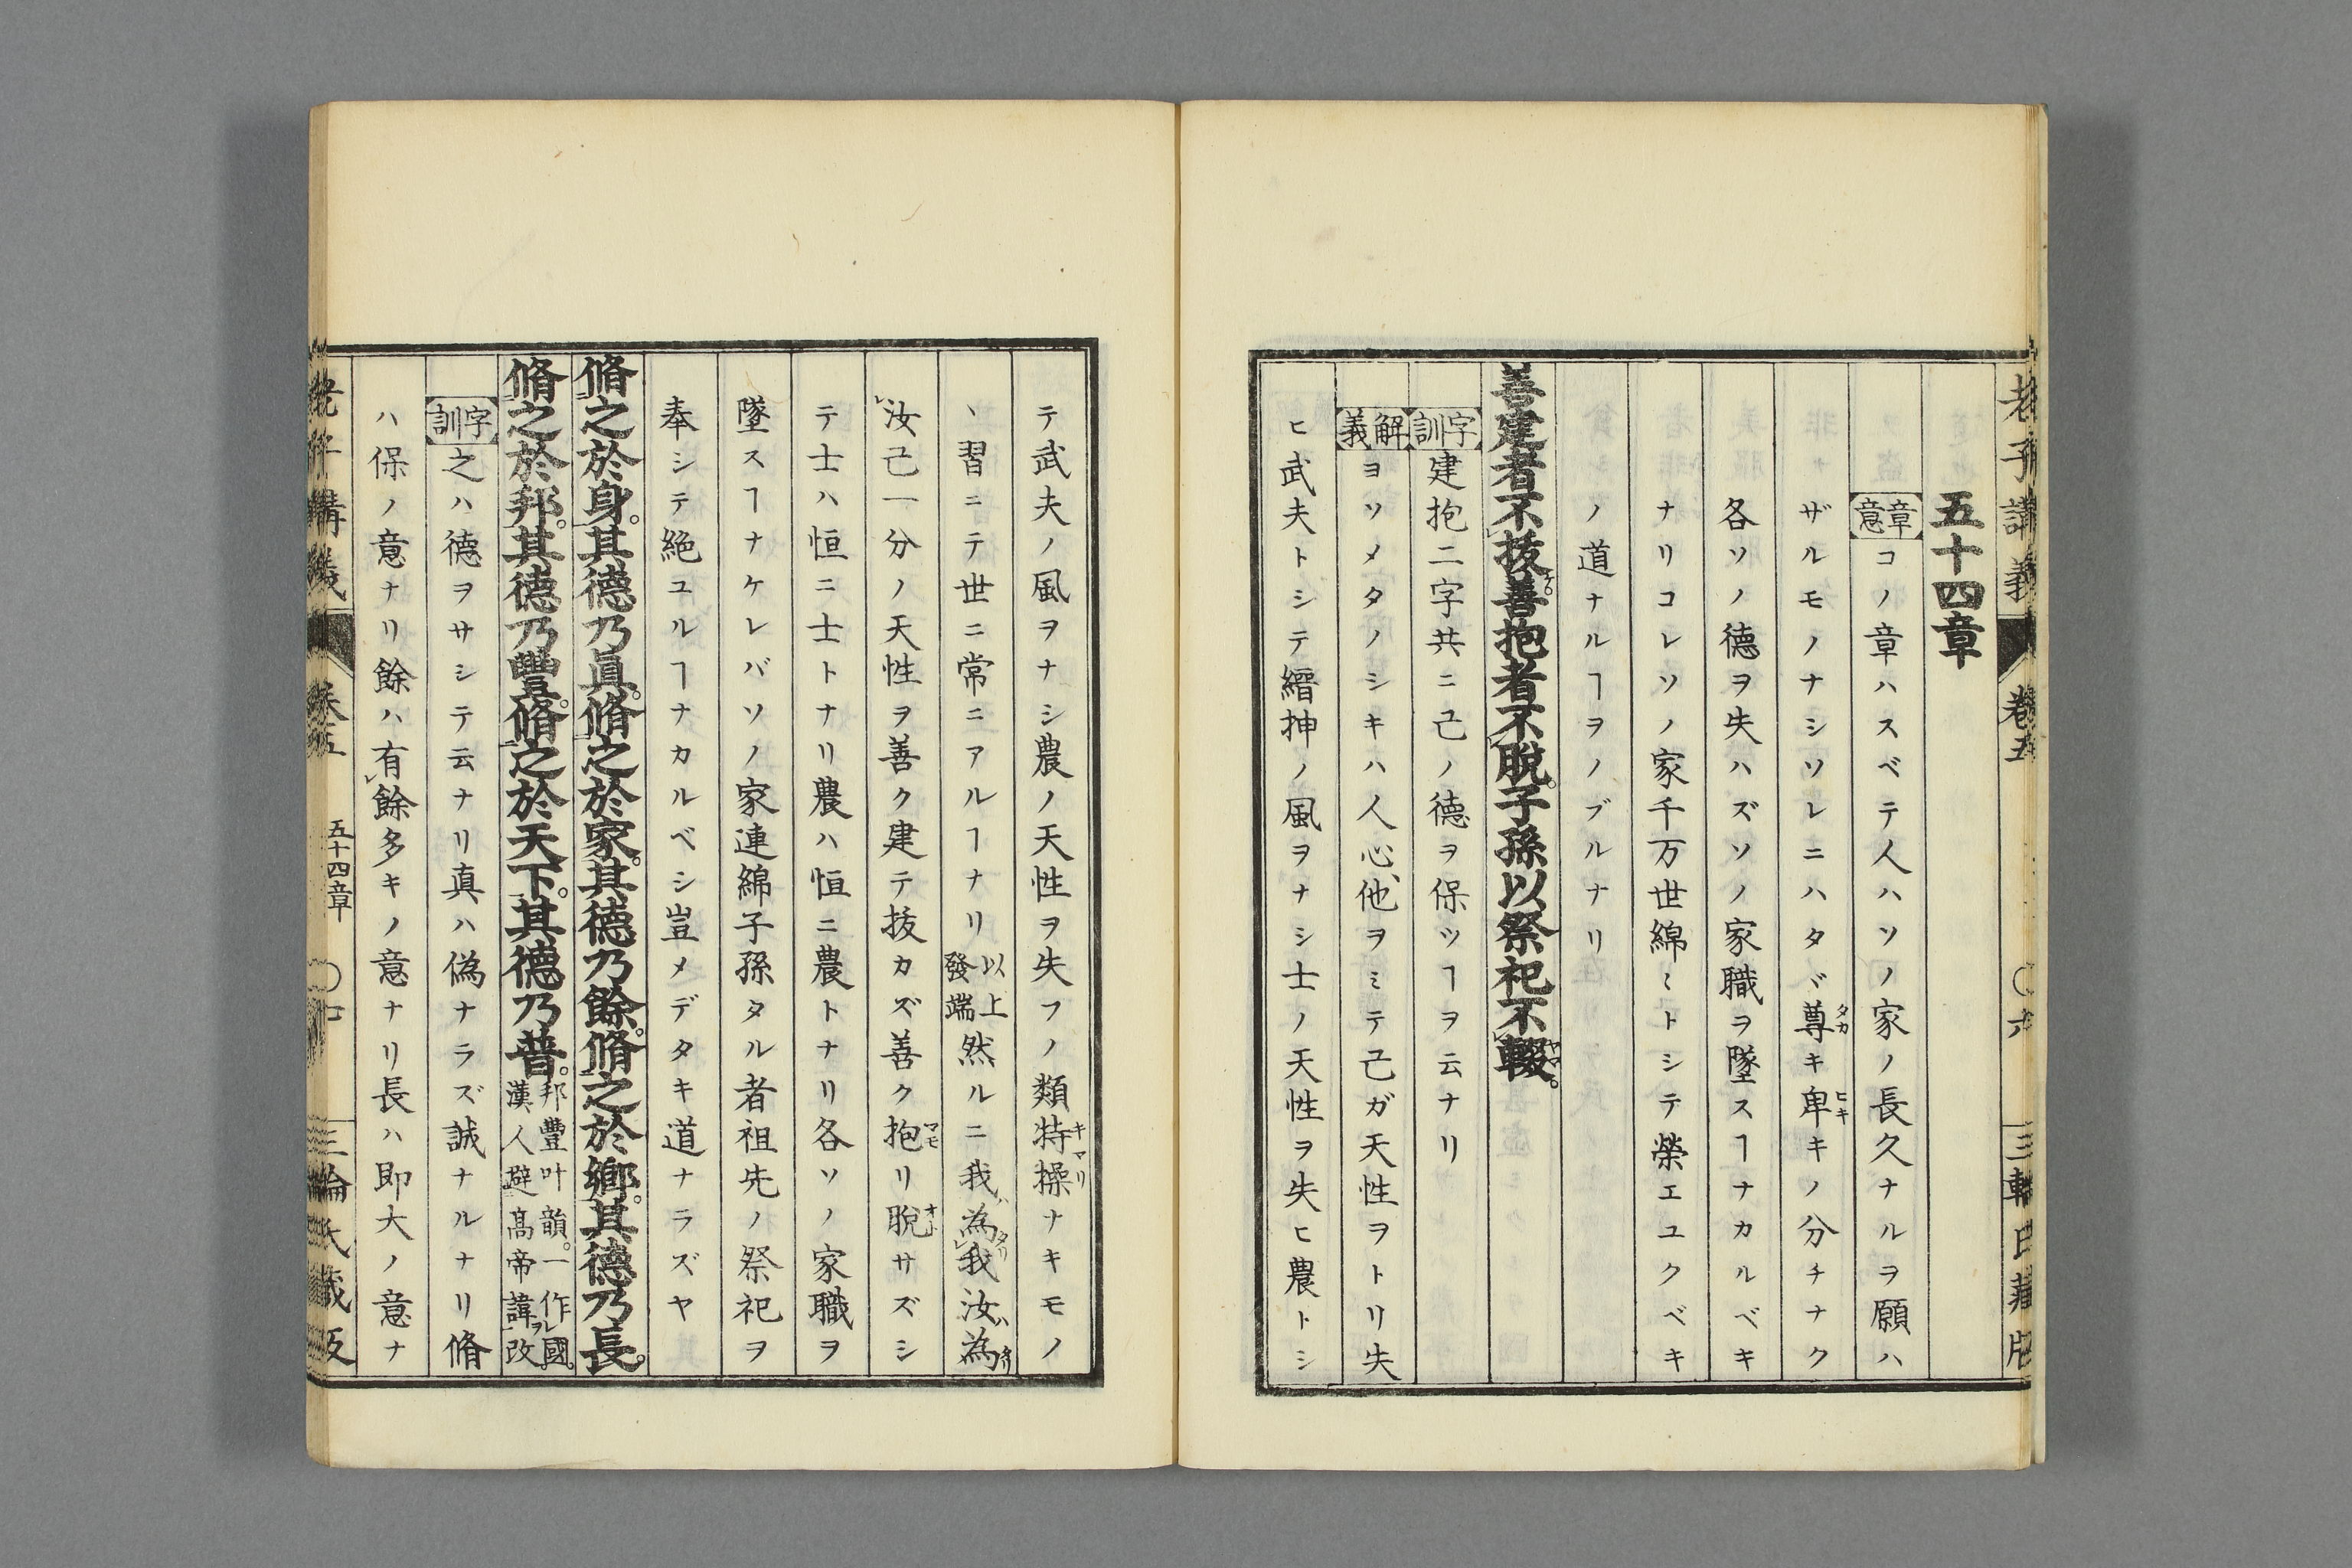 老子講義 卷五 〇六 三輪氏藏版
五十四章
章意 コノ章ハスベテ人ハソノ家ノ長久ナルヲ願ハ
ザルモノナシソレニハタヾ尊タカキ卑ヒキキノ分チナク
各ソノ德ヲ失ハズソノ家職ヲ墜スヿナカルベキ
ナリコレソノ家千万世綿〻トシテ榮エユクベキ
ノ道ナルヿヲノブルナリ
善建者不拔。善抱者不脫。子孫以祭祀不輟ヤマ。
字訓 建抱二字共ニ己ノ德ヲ保ツヿヲ云ナリ
解義 ヨソメタノシキハ人心、他ヲミテ己ガ天性ヲトリ失
ヒ武夫トシテ縉抻ノ風ヲナシ士ノ天性ヲ失ヒ農トシ
テ武夫ノ風ヲナシ農ノ天性ヲ失フノ類特操キマリナキモノ
、習ニテ世ニ常ニアルヿナリ以上發端然ルニ我ハ為タリ㆑我汝ハ為タリ
㆑汝己一分ノ天性ヲ善ク建テ拔カズ善ク抱マモリ脫オトサズシ
テ士ハ恒ニ士トナリ農ハ恒ニ農トナリ各ソノ家職ヲ
墜スヿナケレバソノ家連綿子孫タル者祖先ノ祭祀ヲ
奉シテ絕ユルヿナカルベシ豈メデタキ道ナラズヤ
脩之於身。其德乃眞。脩之於家。其德乃餘。脩之於鄉。其德乃長。
脩之於邦。其德乃豐。脩之於天下。其德乃普。邦豐叶韻。一作㆑國。漢人避高帝諱ヲ改
字訓 之ハ德ヲサシテ云ナリ真ハ偽ナラズ誠ナルナリ脩
ハ保ノ意ナリ餘ハ有㆑餘多キノ意ナリ長ハ即大ノ意ナ
五十四章